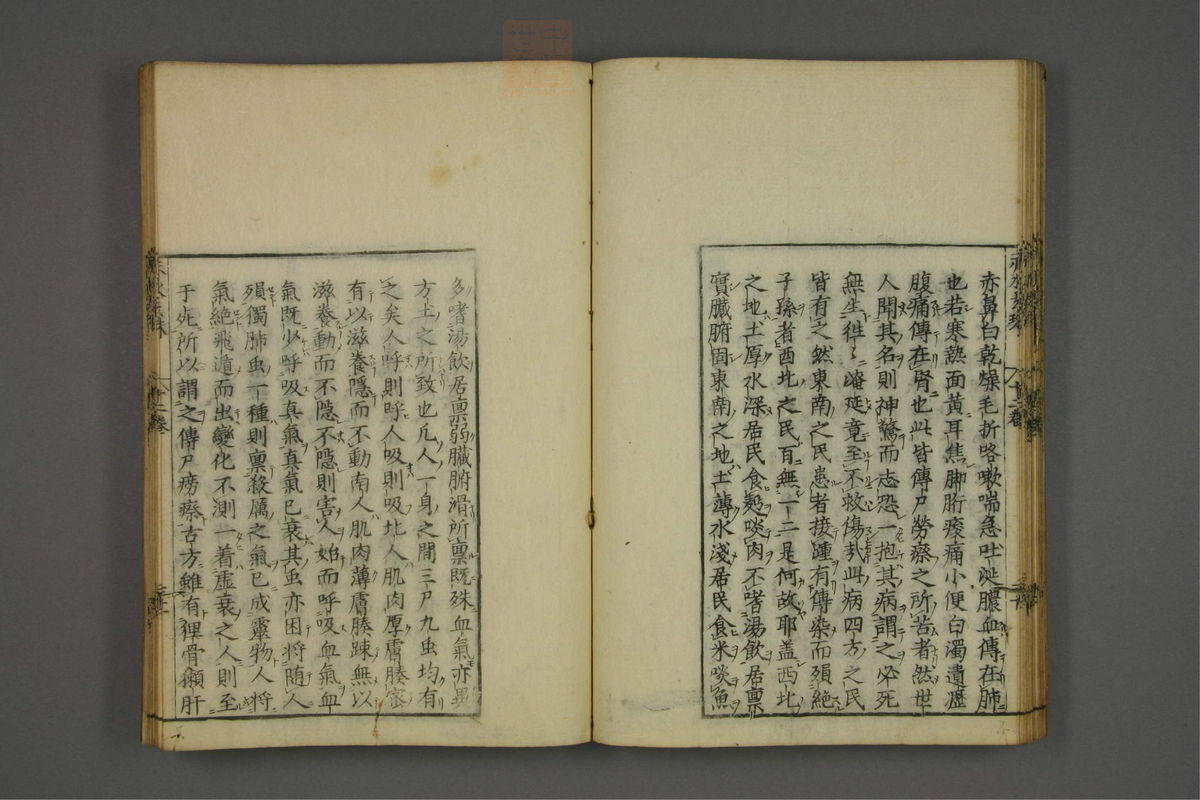 赤鼻白乾燥毛折咯嗽喘急吐涎膿血傳在肺
也若寒熱面黃耳焦脚胻痠痛小便白濁遺瀝
腹痛傳在腎也此皆傳尸勞瘵之所苦者然世
人聞其名則神驚而志恐一抱其病謂之必死
無生徃〻淹延竟至不救傷哉此病四方之民
皆有之然東南之民患者接踵有傳染而殞絕
子孫者西北之民百無一二是何故耶盖西北
之地土厚水深居民食麪啖肉不嗜湯飲居禀
實臟腑固東南之地土薄水淺居民食米啖魚
多嗜湯飲居禀弱臟腑滑所禀既殊血氣亦異
方土之所致也凢人一身之間三尸九虫均有
之矣人呼則呼人吸則吸北人肌肉厚膚腠密
有以滋養隱而不動南人肌肉薄膚腠踈無以
滋養動而不隱不隱則害人始而呼吸血氣血
氣既少呼吸真氣真氣已衰其虫亦困將随人
殞獨肺虫一種則禀殺厲之氣已成靈物人將
氣絕飛遁而出變化不測一着虛衰之人則至
于死所以謂之傳尸癆瘵古方雖有狸骨獺肝